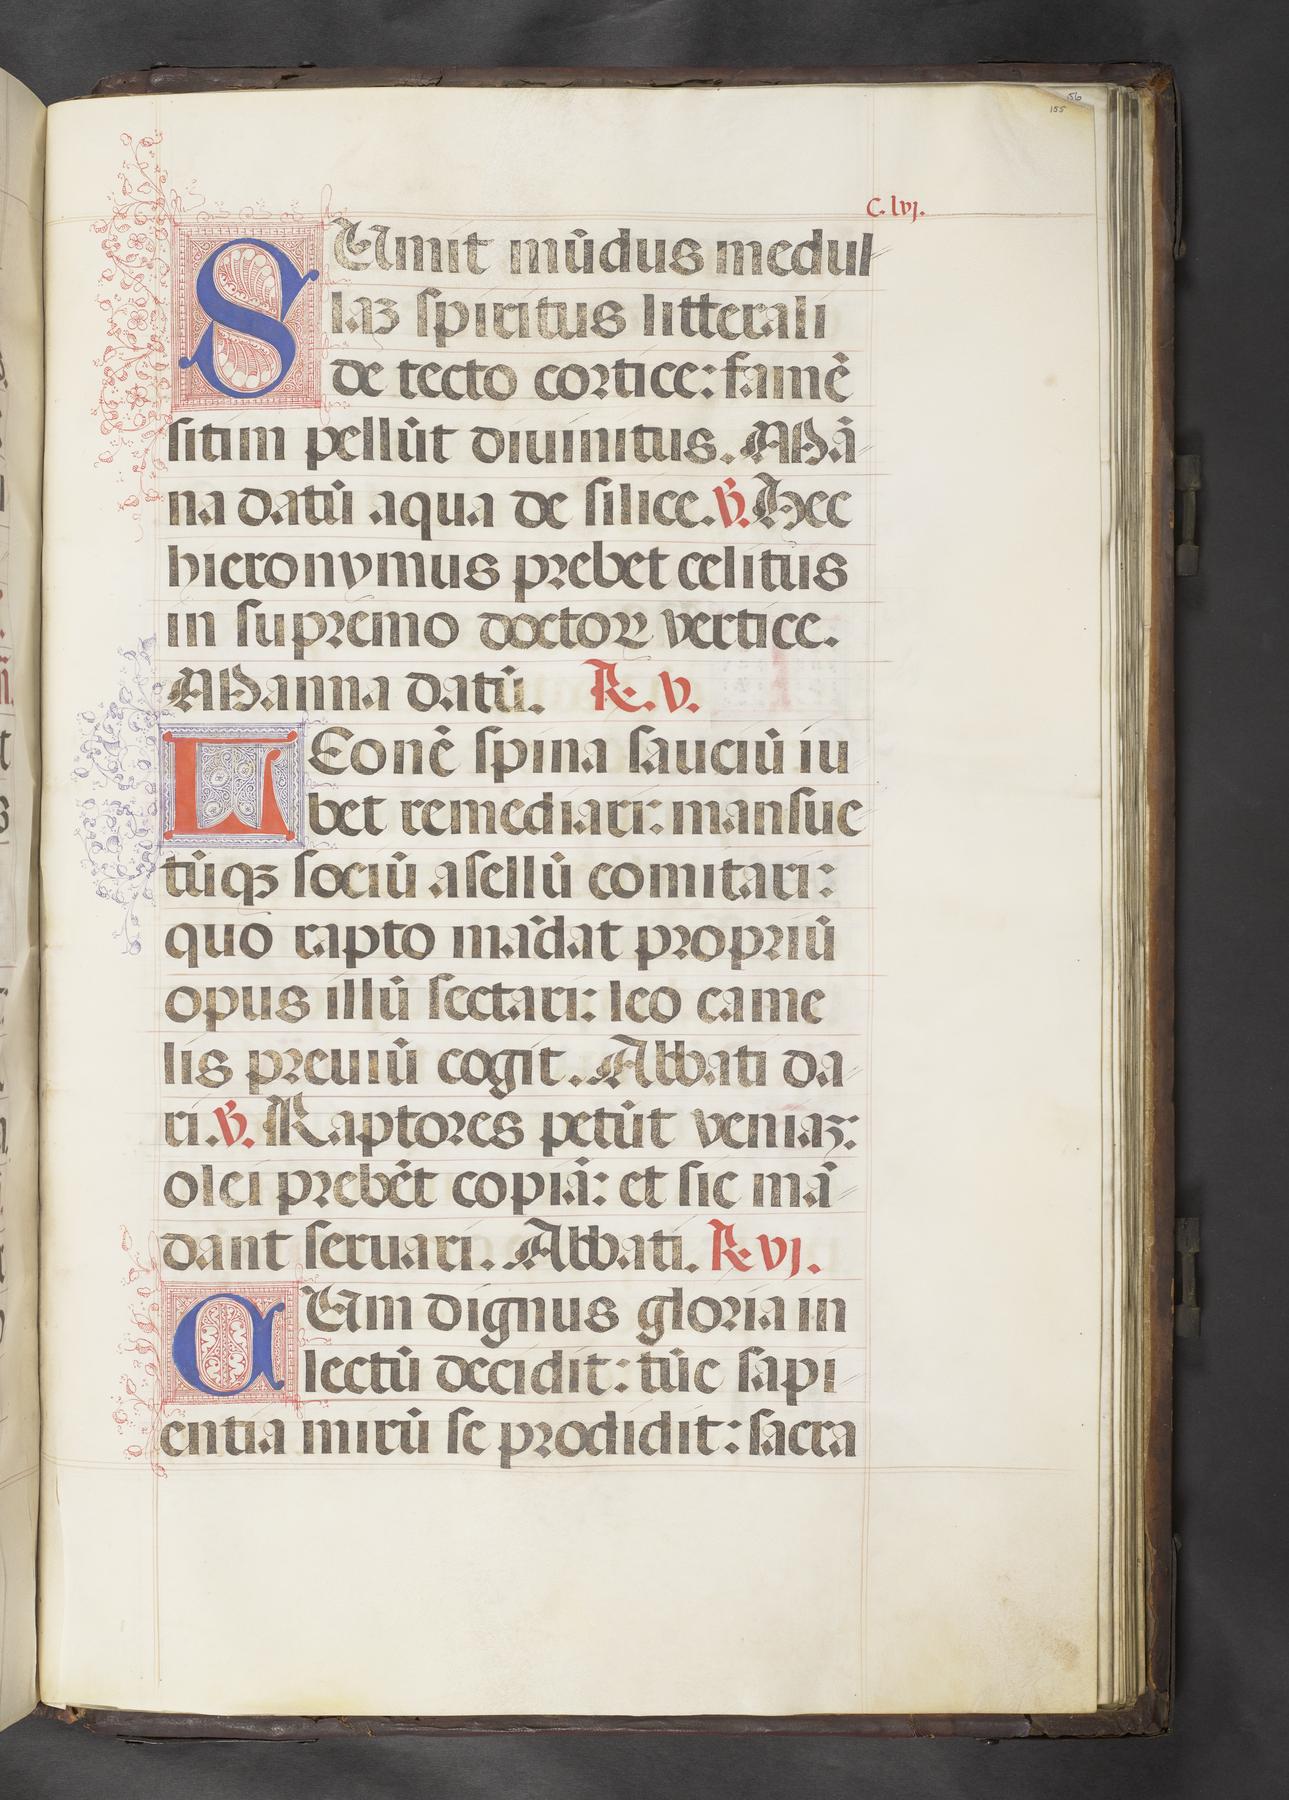 56
155
C. lvj.
SUmit mu᷉dus medul
laꝫ spiritus litterali
de tecto cortice: fame᷉
sitim pellu᷉t diuinitus. Ma᷉
na datu᷉ aqua de silice. ℣. Hec
hieronymus prebet celitus
in supremo doctoꝝ vertice.
Manna datu᷉. ℞. v.
LEone᷉ spina sauciu᷉ iu
bet remediari: mansue
tu᷉qꝫ sociu᷉ asellu᷉ comitari:
quo rapto ma᷉dat propriu᷉
opus illu᷉ sectari: leo came
lis preuiu᷉ cogit. Abbati da
ri. ℣. Raptores petu᷉t veniaꝫ:
olei prebe᷉t copia᷉: et sic ma᷉
dant seruari. Abbati. ℞. vj.
CUm dignus gloria in
lectu᷉ decidit: tu᷉c sapi
entia miru᷉ se prodidit: sacra